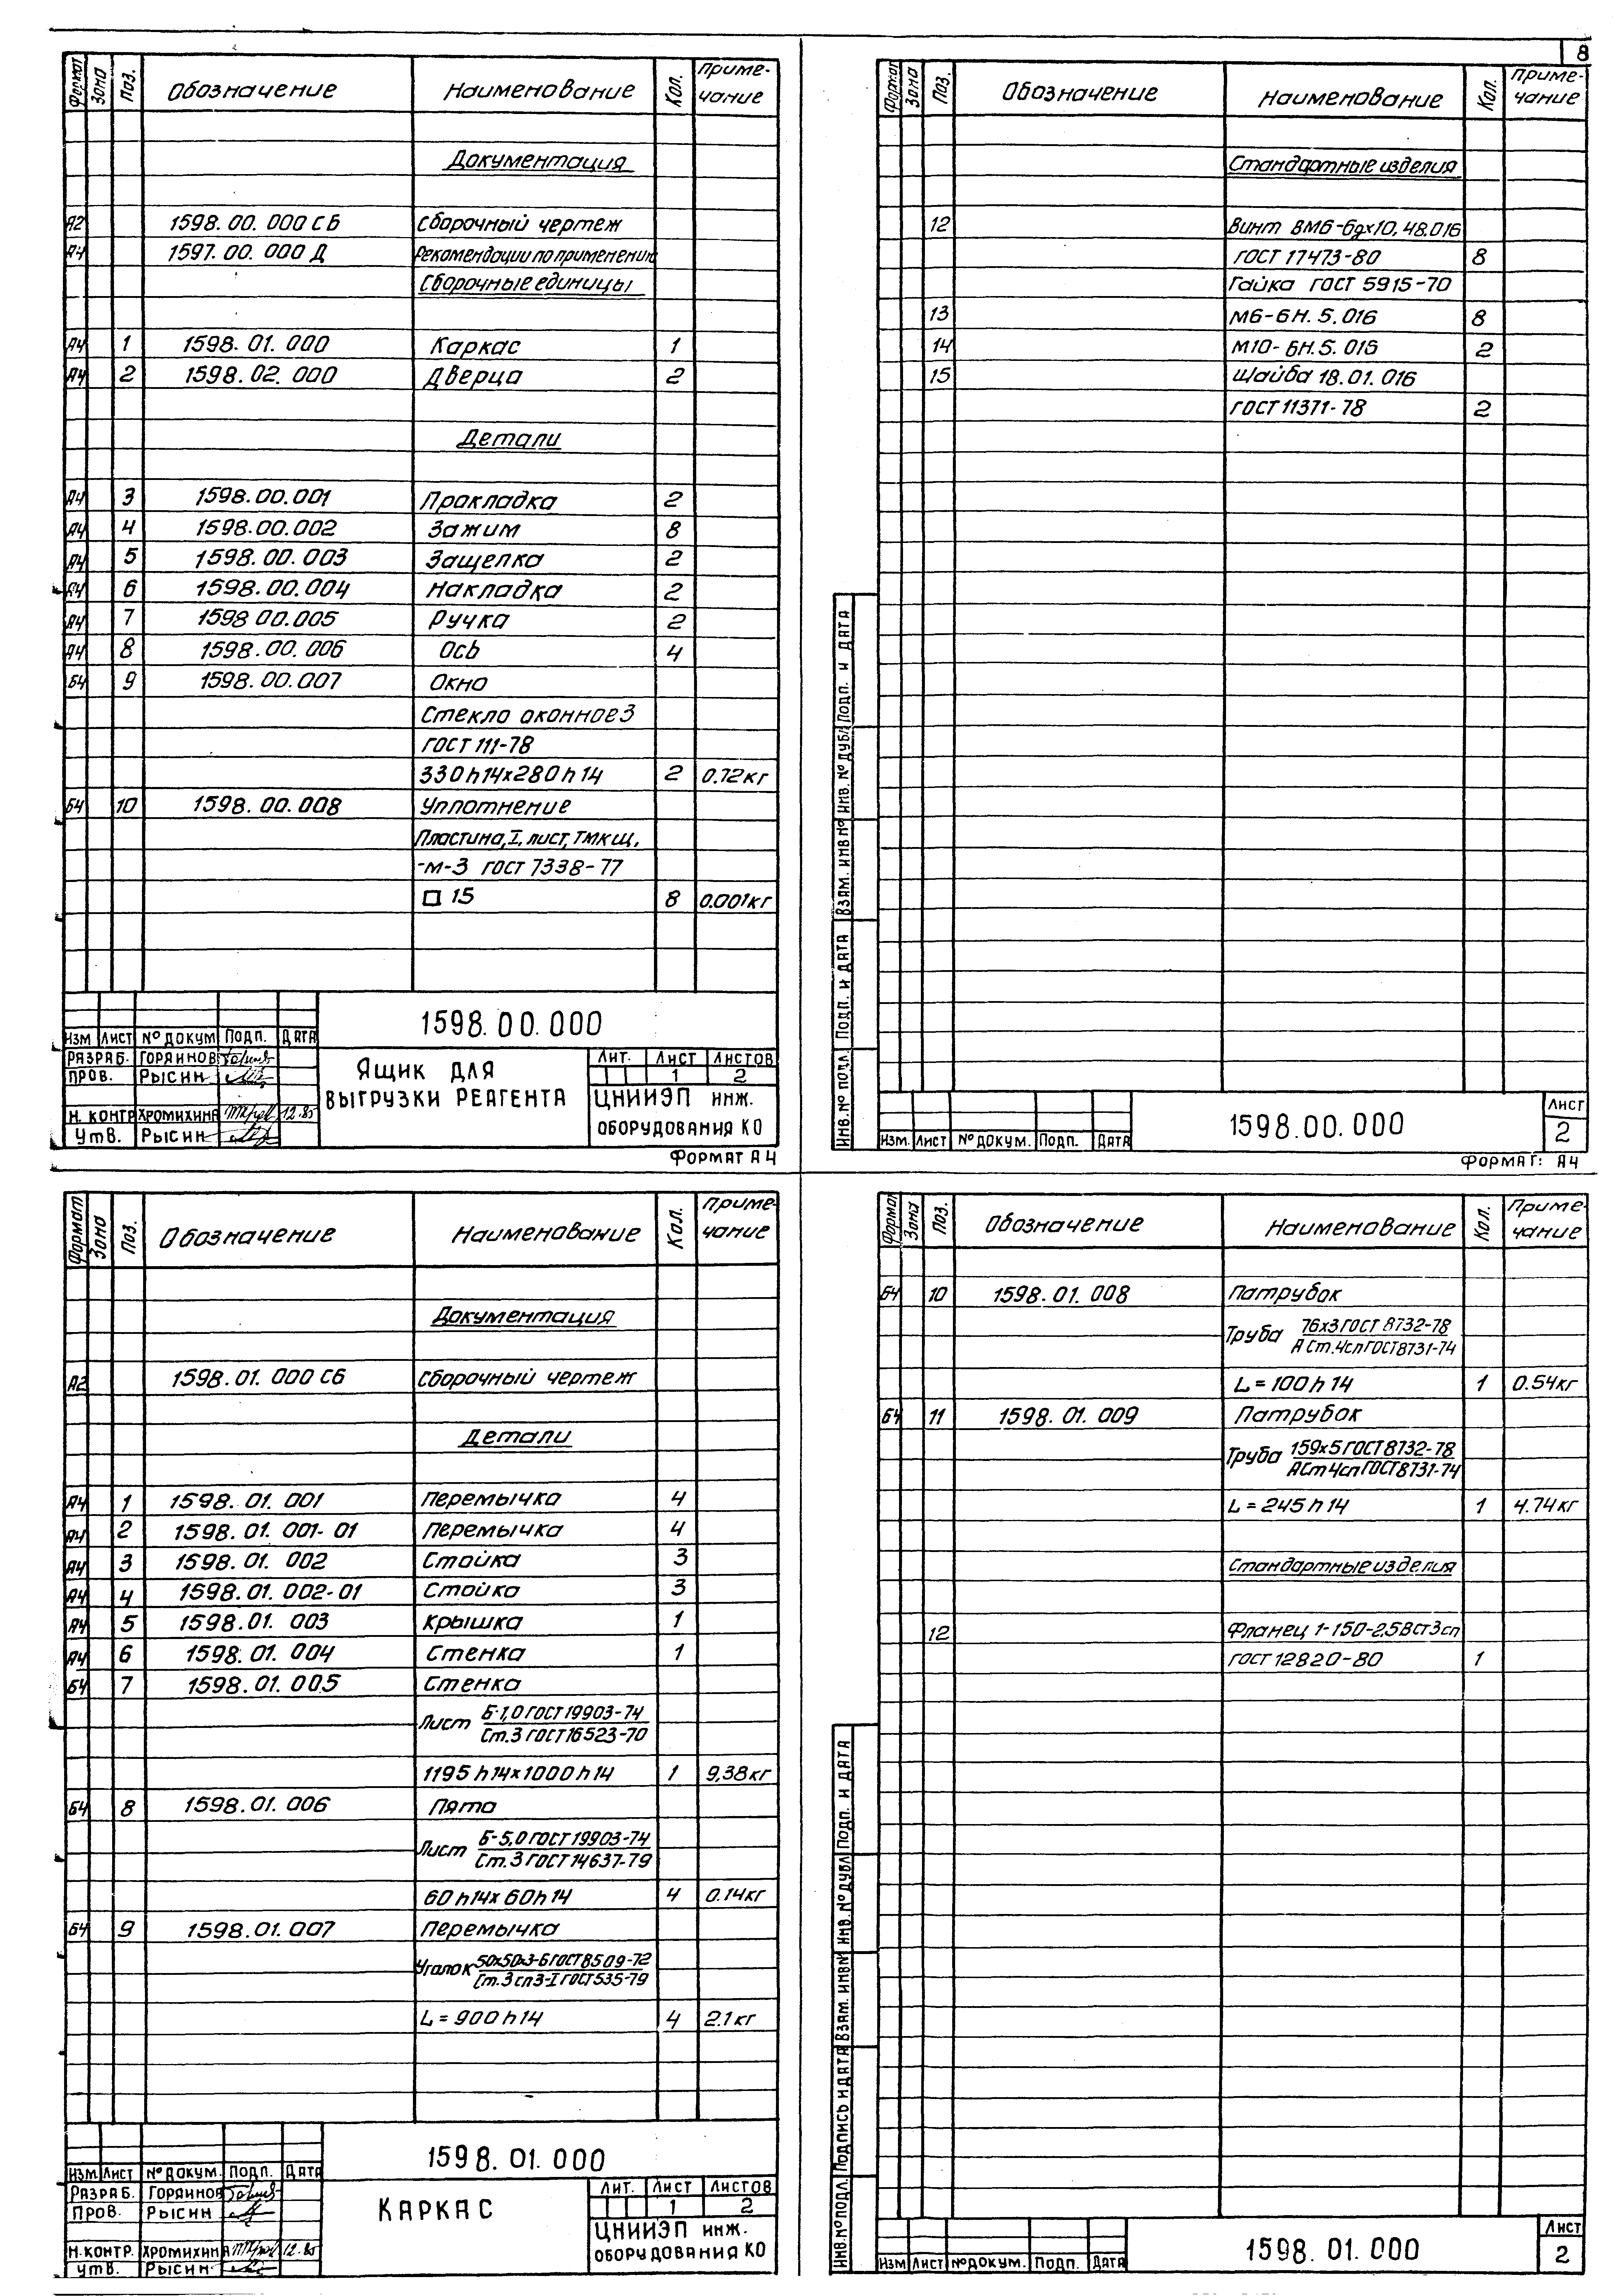 8
Формат Зона Поз. Обозначение Наименование Кол. Приме-
чание
Документация
А2 1598.00.000 СБ Сборочный чертеж
А4 1597.00.000 Д Рекомендации по применению
Сборочные единицы
А4 1 1598.01.000 Каркас 1
А4 2 1598.02.000 Дверца 2
Детали
А4 3 1598.00.001 Прокладка 2
А4 4 1598.00.002 Зажим 8
А4 5 1598.00.003 Защелка 2
А4 6 1598.00.004 Накладка 2
А4 7 1598 00.005 Ручка 2
А4 8 1598.00.006 Ось 4
Б4 9 1598.00.007 Окно
Стекло оконное 3
ГОСТ 111-78
330h14х280h14 2 0.72кг
Б4 10 1598.00.008 Уплотнение
Пластина, I, лист, ТМКЩ,
-М-3 ГОСТ 7338-77
□ 15 8 0.001кг
1598.00.000
Изм Лист № докум Подп. Дата
Разраб. Горяинов
Пров. Рысин
Н. контр Хромихина 12.85
Утв. Рысин
Ящик для
выгрузки реагента
Лит. Лист Листов
1 2
ЦНИИЭП инж.
оборудования КО
Формат А4
Формат Зона Поз. Обозначение Наименование Кол. Приме-
чание
Стандартные изделия
12 Винт ВМ6-6gх10.48.016
ГОСТ 17473-80 8
Гайка ГОСТ 5915-70
13 М6-6Н.5.016 8
14 М10-6Н.5.016 2
15 Шайба 18.01.016
ГОСТ 11371-78 2
Инв.№ подл. Подп. и дата Взам. инв № Инв. № дубл Подп. и дата
Изм. Лист № докум. Подп. Дата
1598.00.000
Лист
2
Формат: А4
Формат Зона Поз. Обозначение Наименование Кол. Приме-
чание
Документация
А2 1598.01.000 СБ Сборочный чертеж
Детали
А4 1 1598.01.001 Перемычка 4
А4 2 1598.01.001-01 Перемычка 4
А4 3 1598.01.002 Стойка 3
А4 4 1598.01.002-01 Стойка 3
А4 5 1598.01.003 Крышка 1
А4 6 1598.01.004 Стенка 1
Б4 7 1598.01.005 Стенка
Лист Б-1,0 ГОСТ 19903-74
Ст.3 ГОСТ 16523-70
1195h14х1000h14 1 9,38кг
Б4 8 1598.01.006 Пята
Лист Б-5,0 ГОСТ 19903-74
Ст.3 ГОСТ 14637-79
60h14х60h14 4 0.14кг
Б4 9 1598.01.007 Перемычка
Уголок 50х50х3-Б ГОСТ 8509-72
Ст.3сп3-I ГОСТ 535-79
L=900h14 4 2.1кг
1598.01.000
Изм Лист № докум. Подп. Дата
Разраб. Горяинов
Пров. Рысин
Н.контр. Хромихина 12.85
Утв. Рысин
Каркас
Лит. Лист Листов
1 2
ЦНИИЭП инж.
оборудования КО
Формат Зона Поз. Обозначение Наименование Кол. Приме-
чание
Б4 10 1598.01.008 Патрубок
Труба 76х3 ГОСТ 8732-78
А Ст.4сп ГОСТ 8731-74
L=100h14 1 0.54кг
Б4 11 1598.01.009 Патрубок
Труба 159х5 ГОСТ 8732-78
А Ст4сп ГОСТ 8731-74
L=245h14 1 4.74кг
Стандартные изделия
12 Фланец 1-150-2,5ВСт3сп
ГОСТ 12820-80 1
Инв.№ подл. Подпись и дата Взам. инв № Инв. № дубл Подп. и дата
Изм Лист № докум. Подп. Дата
1598.01.000
Лист
2